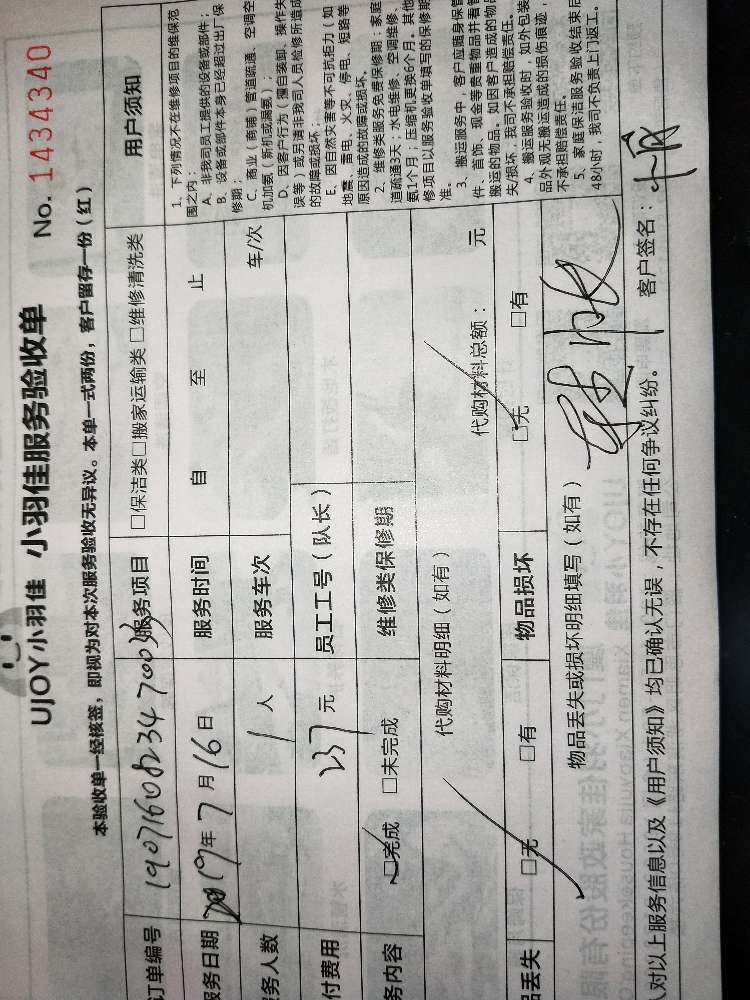 UJOY小羽佳 小羽佳服务验收单 No. 1434340
本验收单一经核签，即视为对本次服务验收无异议。本单一式两份，客户留存一份（红）
订单编号 服务项目 □保洁类□搬家运输类 □维修清洗类 用户须知
服务日期 2019年7月16日 服务时间 自 至 止
务人数 1人 服务车次 车/次
付费用 237元 员工工号（队长）
务内容 □完成 □未完成 维修类保修期
代购材料明细（如有） 代购材料总额： 元
品丢失 □无 □有 物品损坏 □无 □有
物品丢失或损坏明细填写（如有）
1、下列情况不在维修项目的维保范
围之内：
A、非我司员工提供的设备或部件；
B、设备或部件本身已经超过出厂保
修期；
C、商业（商铺）管道疏通、空调空
机加氨（新机或漏氨）；
D、因客户行为（擅自装卸、操作失
误等）或另请非我司人员检修所造成
的故障或损坏；
E、因自然灾害等不可抗拒力（如
地震、蓄电、火灾、停电、短路等
原因造成的故障或损坏。
2、维修类服务免费保修期：家庭
道疏通3天；水电维修、空调维修、
氨1个月；压缩机更换6个月。其他
修项目以服务验收单填写的保修期
准。
3、搬运服务中，客户应随身保管
件、首饰、现金等贵重物品并看管
搬运的物品。如因客户造成的物品
失/损坏，我司不承担赔偿责任。
4、搬运服务验收时，如外包装
品外观无搬运造成的损伤痕迹，
不承担赔偿责任。
5、家庭保洁服务验收结束后
48小时，我司不负责上门返工。
人对以上服务信息以及《用户须知》均已确认无误，不存在任何争议纠纷。 客户签名：